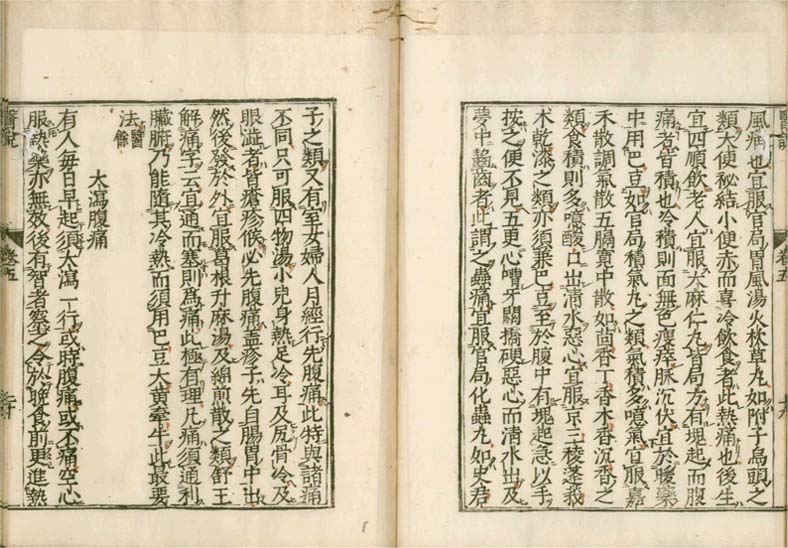 風病也宜服官局胃風湯火杴草丸如附子烏頭之
類大便秘結小便赤而喜冷飲食者此熱痛也後生
宜四順飲老人宜服大麻仁丸皆局方有塊起而腹
痛者皆積也冷積則面無色瘦瘁脉沉伏宜於暖藥
中用巴豆如官局積氣丸之類氣積多噫氣宜服嘉
禾散調氣散五膈寛中散如茴香丁香木香沉香之
類食積則多噫酸口出清水惡心宜服京三稜蓬莪
朮乾漆之類亦須兼巴豆至於腹中有塊起急以手
按之便不見五更心嘈牙關撟硬惡心而清水出及
夢中齧齒者此謂之蟲痛宜服官局化蟲丸如史君
醫說
卷五
十九
子之類又有室女婦人月經行先腹痛此特與諸痛
不同只可服四物湯小兒身熱足冷耳及尻骨冷及
眼澁者皆瘡疹候必先腹痛盖疹子先自腸胃中出
然後發於外宜服葛根升麻湯及綿煎散之類舒王
解痛字云宜通而塞則爲痛此極有理凡痛須通利
臟腑乃能隨其冷熱而須用巴豆大黄牽牛此最要
法醫餘
大瀉腹痛
有人每日早起須大瀉一行或時腹痛或不痛空心
服熱藥亦無效後有智者察之令於晚食前更進熱
醫說
卷五
二十